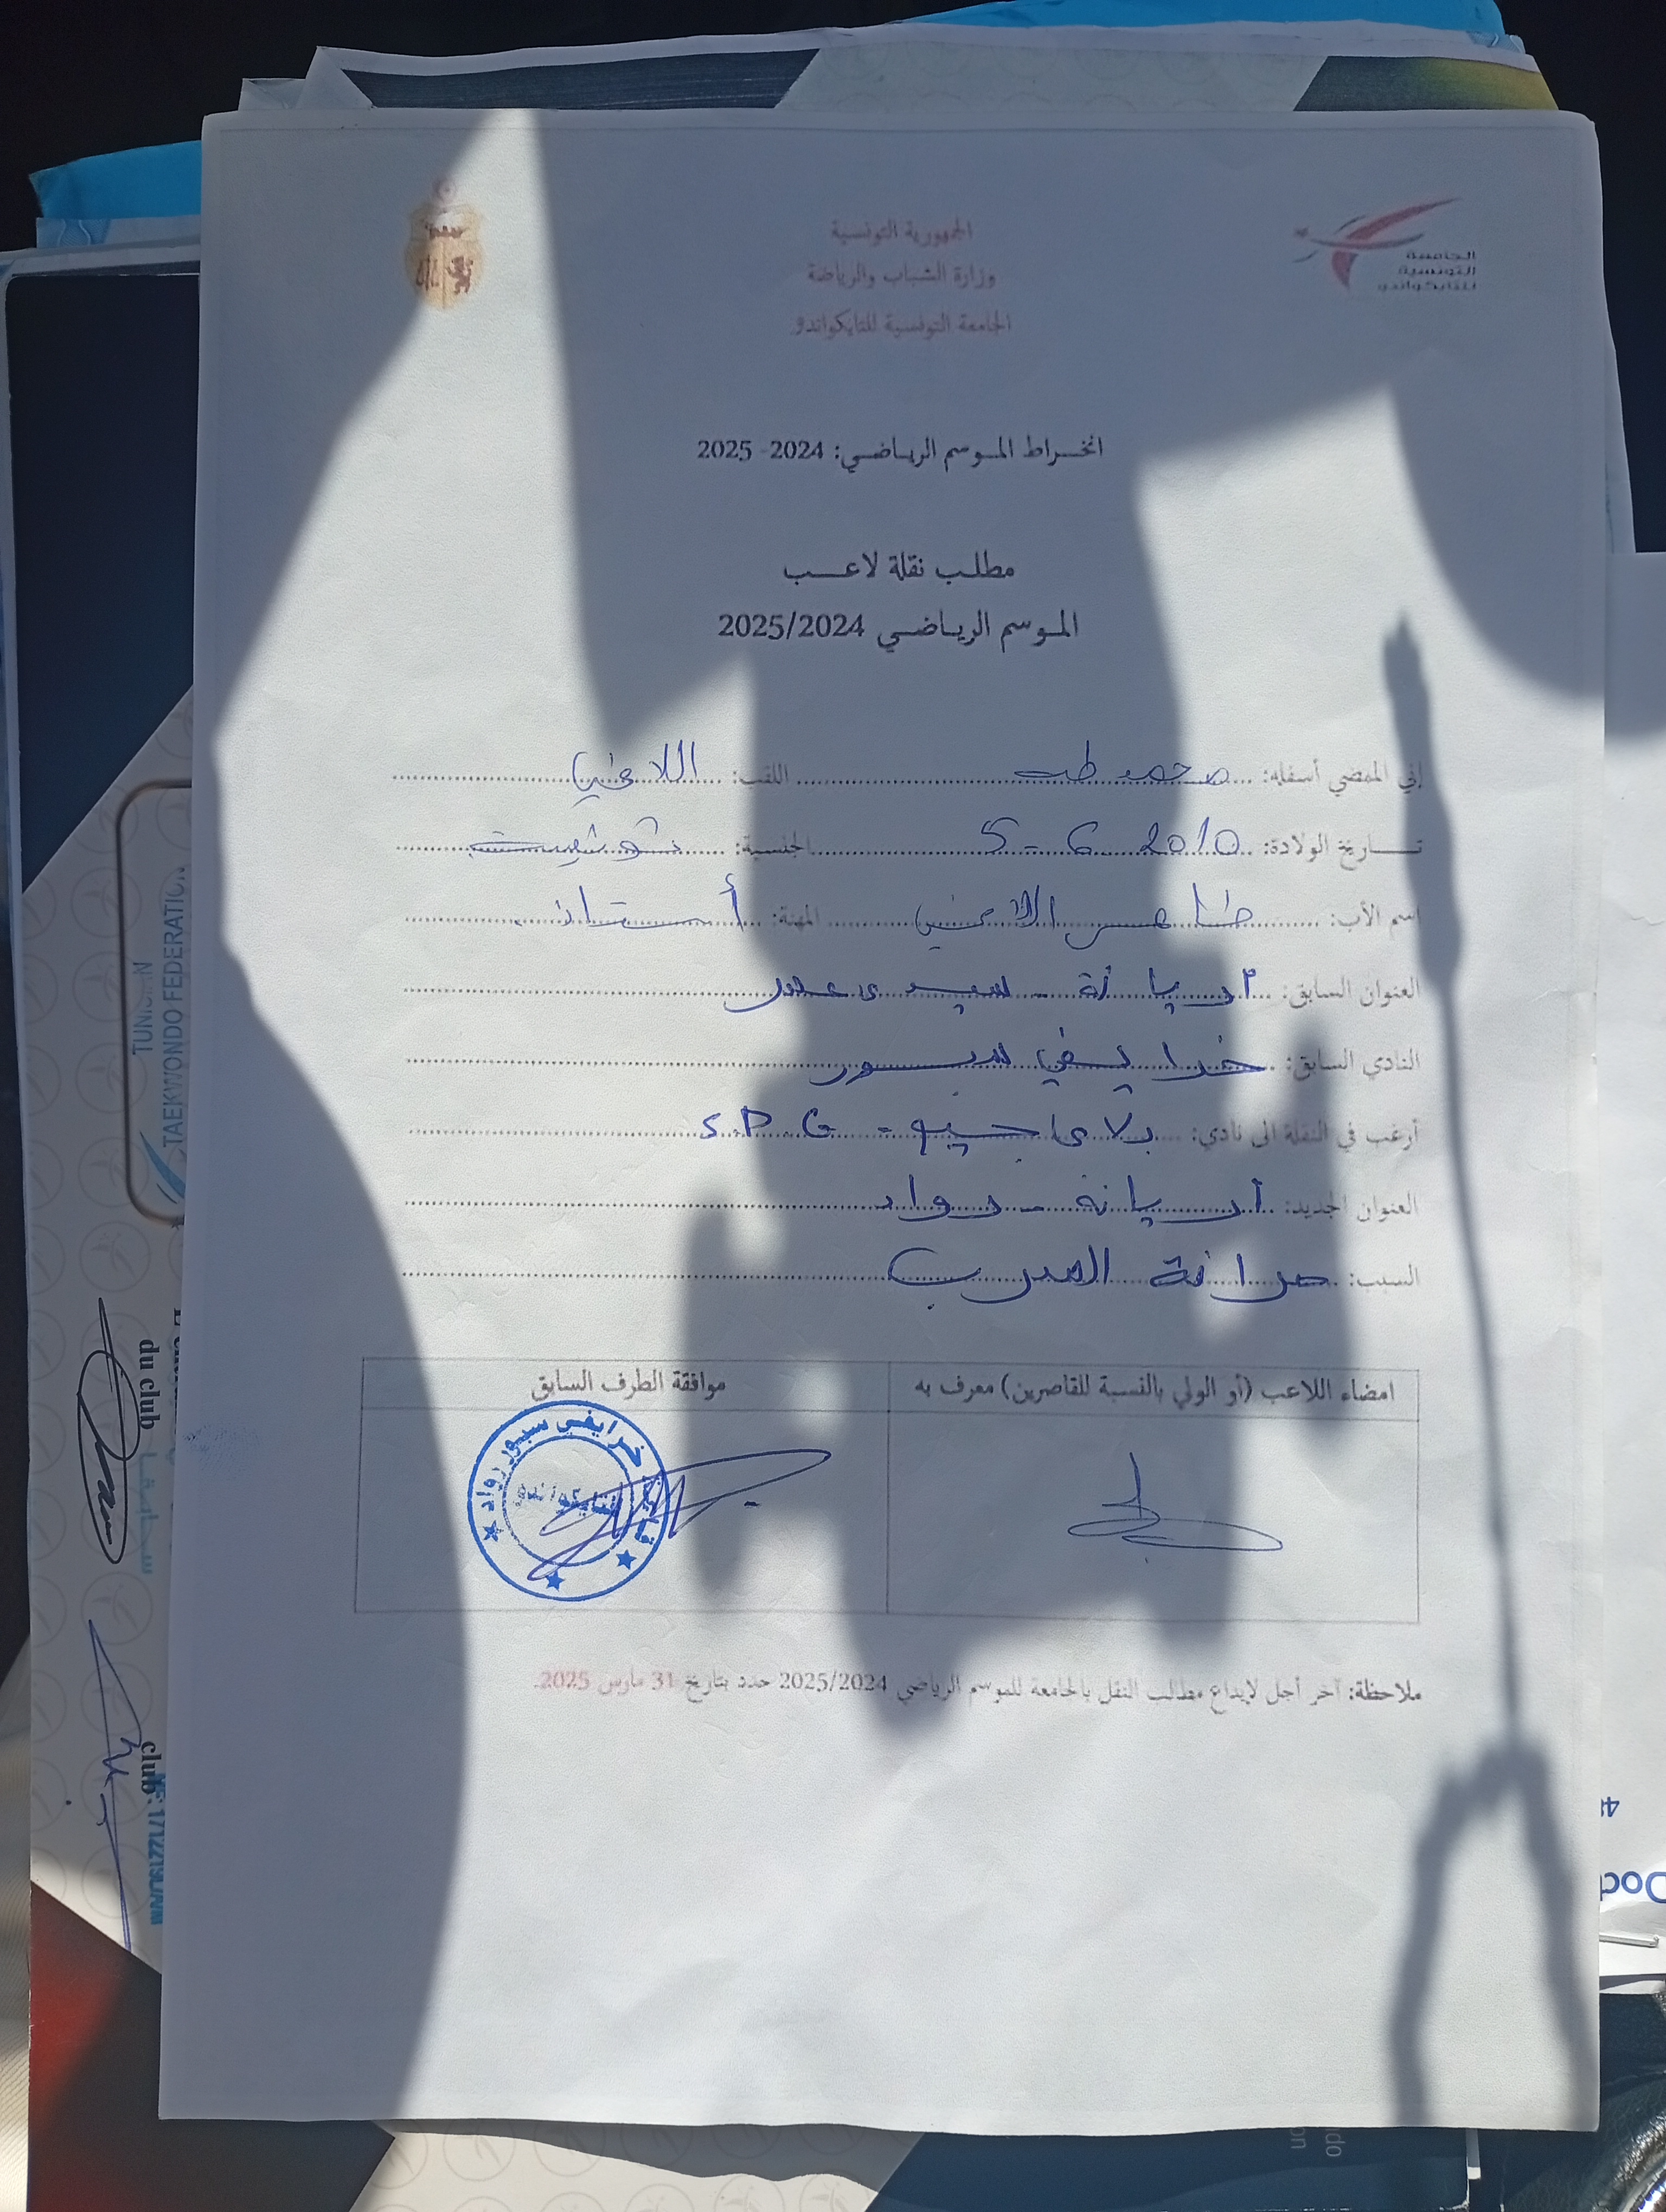 الجمهورية التونسية
وزارة الشباب والرياضة
الجامعة التونسية للتايكواندو
الجامعة
التونسية
للتايكواندو
انخراط الموسم الرياضي: 2024- 2025
مطلب نقلة لاعب
الموسم الرياضي 2025/2024
إني الممضي أسفله: محمد طه اللقب:
تاريخ الولادة: 2010 - 6 - 5 الجنسية: تونسية
اسم الأب: المهنة: أستاذ
العنوان السابق: أريانة - سيدي عمر
النادي السابق: خرايفي سبور
أرغب في النقلة الى نادي: S.P.G -
العنوان الجديد: أريانة - رواد
السبب: مرافقة المدرب
امضاء اللاعب (أو الولي بالنسبة للقاصرين) معرف به
موافقة الطرف السابق
خرايفي سبور رواد
للتايكواندو
ملاحظة: آخر أجل لإيداع مطالب النقل بالجامعة للموسم الرياضي 2025/2024 حدد بتاريخ 31 مارس 2025.
TUNISIAN
TAEKWONDO FEDERATION
du club
club: